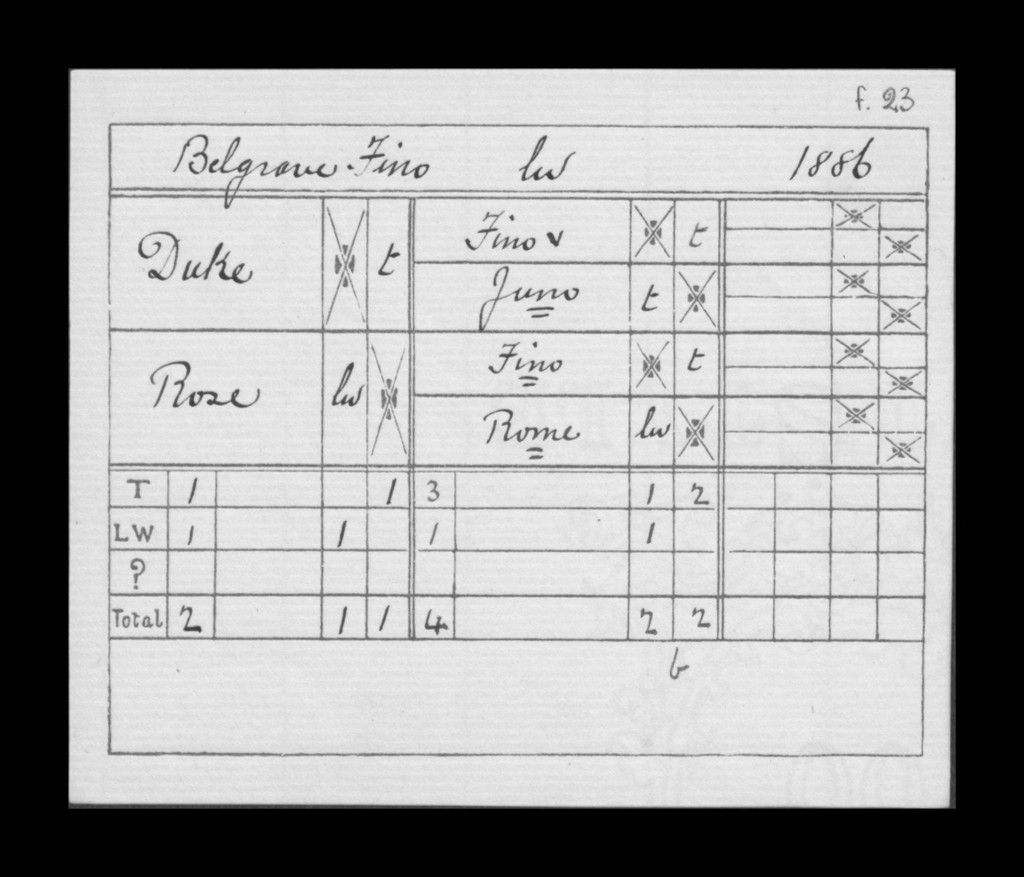 f. 23
Belgrave Fino lw 1886
Duke t
Fino v t
Juno t
Rose lw
Fino t
Rome lw
T 1 1 3 1 2
LW 1 1 1 1
?
Total 2 1 1 4 2 2
b